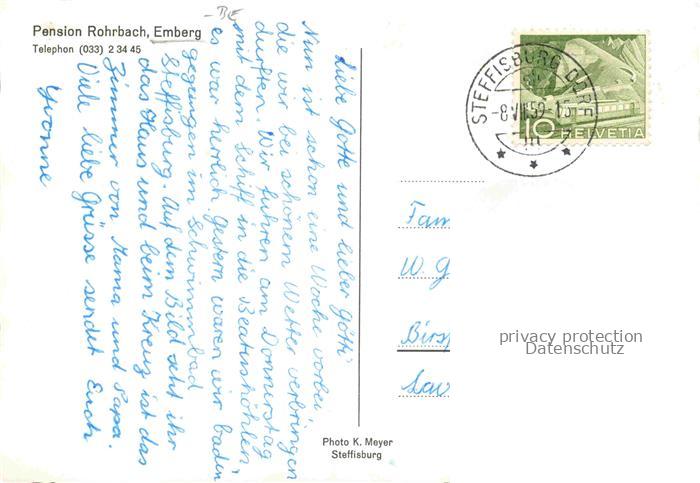 Pension Rohrbach, Emberg
Telephon (033) 2 34 45
- BE
Liebe Gotte und lieber Götti
Nun ist schon eine Woche vorbei
die wir bei schönem Wetter verbringen
durften. Wir fuhren am Donnerstag
mit dem Schiff in die Beatushöhlen
es war herlich. Gestern waren wir baden
gegangen im Schwimmbad
Steffisburg. Auf dem Bild seht ihr
das Haus und beim Kreuz ist das
Zimmer von Mama und Papa.
Viele liebe Grüsse sendet Euch
Yvonne
Photo K. Meyer
Steffisburg
STEFFISBURG DORF
-8.VIII.59-15
10 HELVETIA
Fam
W. G
Birs
Lau
privacy protection
Datenschutz